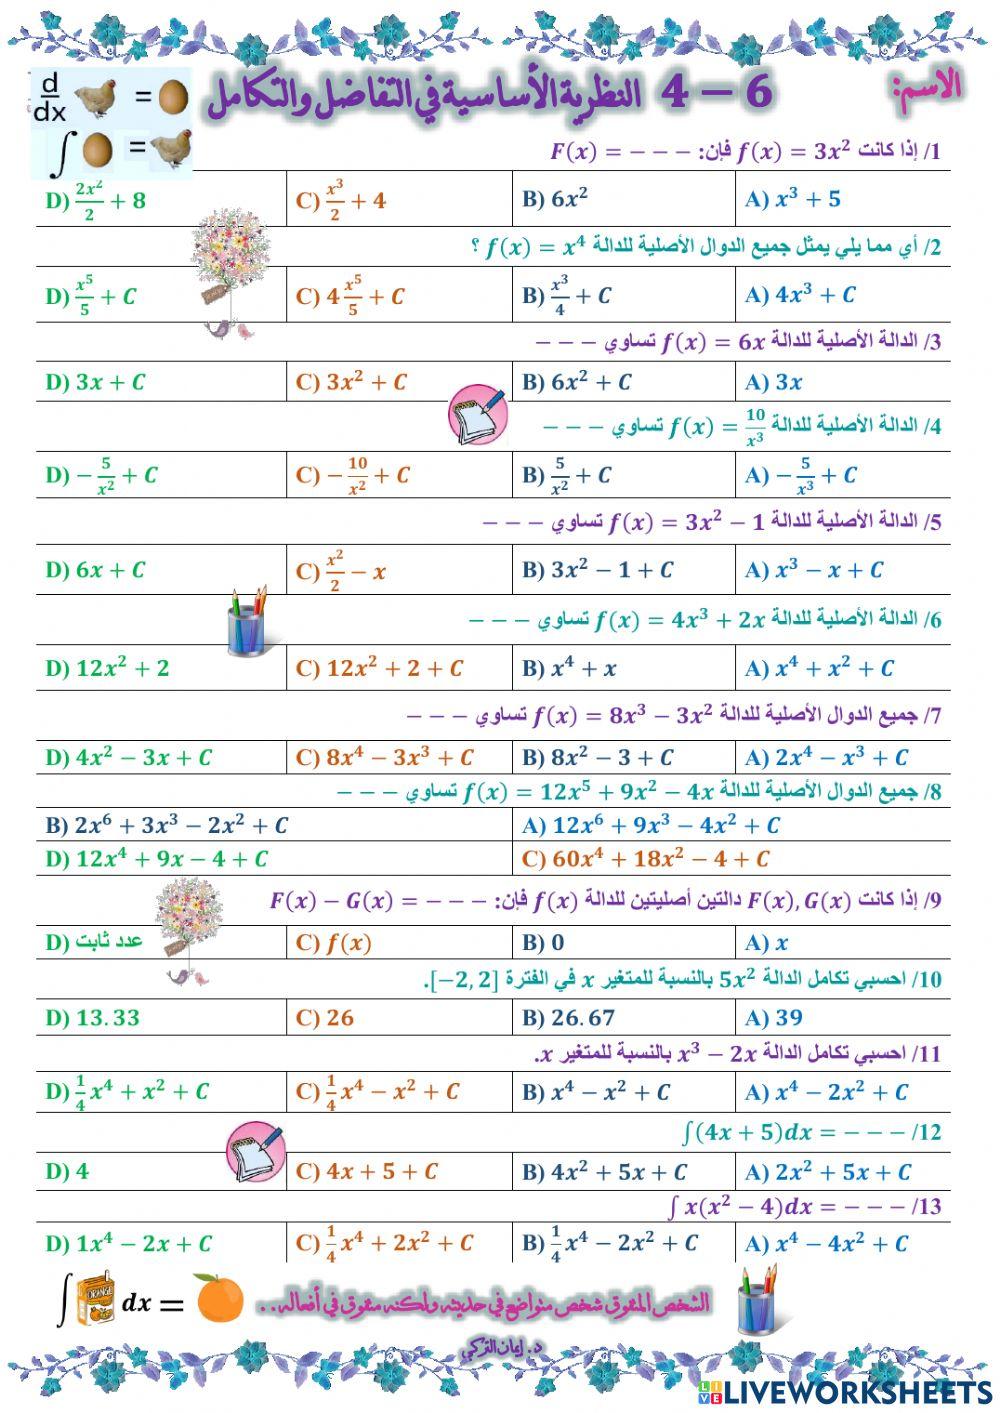 الاسم:
4 – 6 النظرية الأساسية في التفاضل والتكامل
d/dx =
∫ =
1/ إذا كانت f(x) = 3x² فإن: F(x) = – – –
A) x³ + 5 B) 6x² C) x³/2 + 4 D) 2x²/2 + 8
2/ أي مما يلي يمثل جميع الدوال الأصلية للدالة f(x) = x⁴ ؟
A) 4x³ + C B) x³/4 + C C) 4 x⁵/5 + C D) x⁵/5 + C
3/ الدالة الأصلية للدالة f(x) = 6x تساوي – – –
A) 3x B) 6x² + C C) 3x² + C D) 3x + C
4/ الدالة الأصلية للدالة f(x) = 10/x³ تساوي – – –
A) – 5/x³ + C B) 5/x² + C C) – 10/x² + C D) – 5/x² + C
5/ الدالة الأصلية للدالة f(x) = 3x² – 1 تساوي – – –
A) x³ – x + C B) 3x² – 1 + C C) x²/2 – x D) 6x + C
6/ الدالة الأصلية للدالة f(x) = 4x³ + 2x تساوي – – –
A) x⁴ + x² + C B) x⁴ + x C) 12x² + 2 + C D) 12x² + 2
7/ جميع الدوال الأصلية للدالة f(x) = 8x³ – 3x² تساوي – – –
A) 2x⁴ – x³ + C B) 8x² – 3 + C C) 8x⁴ – 3x³ + C D) 4x² – 3x + C
8/ جميع الدوال الأصلية للدالة f(x) = 12x⁵ + 9x² – 4x تساوي – – –
A) 12x⁶ + 9x³ – 4x² + C B) 2x⁶ + 3x³ – 2x² + C
C) 60x⁴ + 18x² – 4 + C D) 12x⁴ + 9x – 4 + C
9/ إذا كانت F(x), G(x) دالتين أصليتين للدالة f(x) فإن: F(x) – G(x) = – – –
A) x B) 0 C) f(x) D) عدد ثابت
10/ احسبي تكامل الدالة 5x² بالنسبة للمتغير x في الفترة [–2, 2].
A) 39 B) 26.67 C) 26 D) 13.33
11/ احسبي تكامل الدالة x³ – 2x بالنسبة للمتغير x.
A) x⁴ – 2x² + C B) x⁴ – x² + C C) 1/4 x⁴ – x² + C D) 1/4 x⁴ + x² + C
12/ ∫(4x + 5)dx = – – –
A) 2x² + 5x + C B) 4x² + 5x + C C) 4x + 5 + C D) 4
13/ ∫ x(x² – 4)dx = – – –
A) x⁴ – 4x² + C B) 1/4 x⁴ – 2x² + C C) 1/4 x⁴ + 2x² + C D) 1x⁴ – 2x + C
∫ ORANGE dx =
الشخص المتفوق شخص متواضع في حديثه ولكنه متفوق في أفعاله..
د. إيمان التركي
LIVE LIVEWORKSHEETS